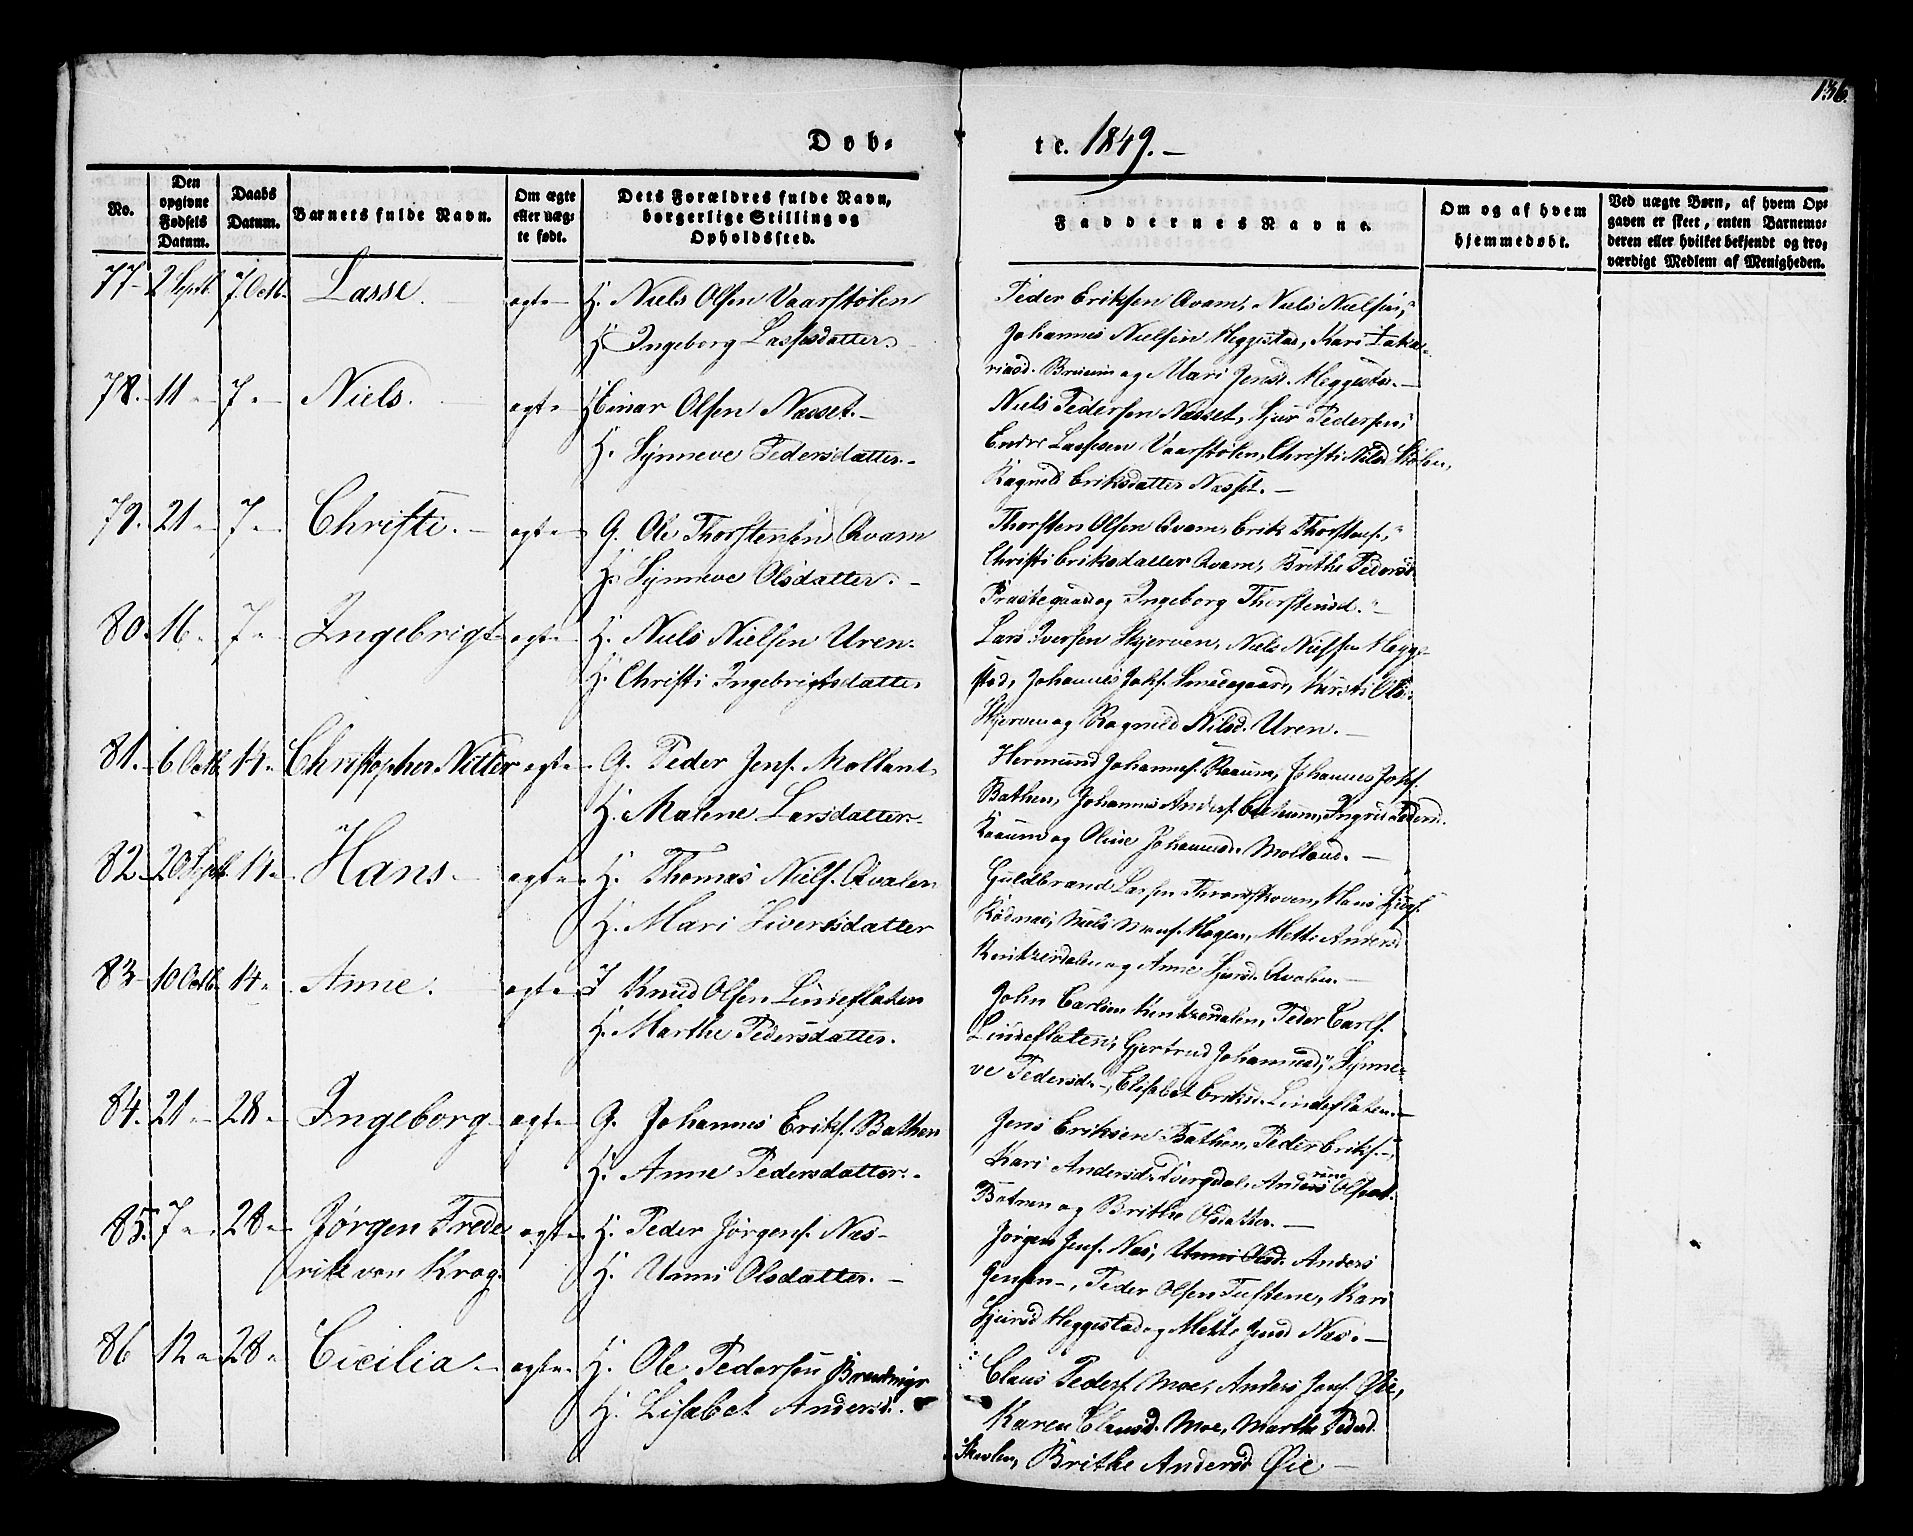 136.
Døb-
te. 1849.-
No.
Den opgivne Fødsels Datum.
Daabs Datum.
Barnets fulde Navn.
Om ægte eller uæg-te født.
Dets Forældres fulde Navn, borgerlige Stilling og Opholdssted.
Faddernes Navne.
Om og af hvem hjemmedøbt.
Ved uægte Børn, af hvem Op-gaven er skeet, enten Barnemo-deren eller hvilket bekjendt og tro-værdigt Medlem af Menigheden.
77- 2 Septb. 7. Octb. Lasse. ægte H. Niels Olsen Vaarstølen
H. Ingeborg Lassesdatter.
Peder Eriksen Avam, Niels Nielsen,"
Johannes Nielsen Heggestad, Kari Zaka-
riasd. Bruun og Mari Jensd. Heggestad.-
78. 11 - 7 - Niels. ægte H Einar Olsen Næsset.-
H. Synneve Pedersdatter.-
Niels Pedersen Næsset, Sjur Pedersen,"
Endre Lassesen Vaarstølen, Christi Nilsd Stølen,
Ragnild Eriksdatter Næsset.-
79. 21 - 7 - Christi. ægte G. Ole Thorstensen Avam
H. Synneve Olsdatter.-
Thorsten Olsen Avam, Erik Thorstens.,"
Christi Eriksdatter Avam, Brithe Pedersd
Præstegaard og Ingeborg Thorstensd."-
80. 16 - 7 - Ingebrigt ægte H. Niels Nielsen Uren.
H. Christi Ingebrigtsdatter
Lars Iversen Skjerven, Niels Nielsen Hegge-
stad, Johannes Johs. Smedegaard, Kirsti Ols.
Skjerven og Ragnild Nilsd. Uren.-
81. 6 Octb. 14. Christopher Nitter ægte G. Peder Jens. Molland
H. Malene Larsdatter.
Hermund Johannes. Raaum, Johannes Johs.
Bathen, Johannes Anders. Raaum og Oline Johannesd. Molland.-
82. 20 Septb. 14. Hans ægte H. Thomas Niels. Qvalen
H. Mari Siversdatter
Guldbrand Larsen Throndskoven, Hans Sjurs.
Rødnæs, Niels Hagen, Mette Andersd
Kentzerdalen og Anne Sjursd. Qvalen.-
83 10 Octb. 14. Anne. ægte I Knud Olsen Lindefladen
H. Marthe Pedersdatter.
John Carlsen Kentzerdalen, Peder Carls.
Lindefladen, Gjertrud Johannesd," Synne-
ve Pedersd.-, Elisabet Eriksd. Lindefladen.-
84. 21 - 28 - Ingeborg ægte G. Johannes Eriks. Bathen
H. Anne Pedersdatter.-
Jens Eriksen Bathen, Peder Eriks.-,
Kari Andersd. Tvergdal, Anders Olsdat.
Bathen og Brithe Olsdatter.-
85. 7 - 28 - Jørgen Frede- ægte H. Peder Jørgens. Næs-
rik von Krog. H. Unni Olsdatter.-
Jørgen Jens. Næs, Unni Olsd. Anders
Jensen-, Peder Olsen Tuftene, Kari
Sjursd Heggestad og Mette Jensd Næs.-
86 12 - 28 - Cicilia - ægte H. Ole Pedersen Brendmyr
H. Lisabet Andersd.
Claus Peders. Moe, Anders Jens. Øie,
Karen Clausd. Moe, Marthe Pedersd.
Brithe Andersd Øie -